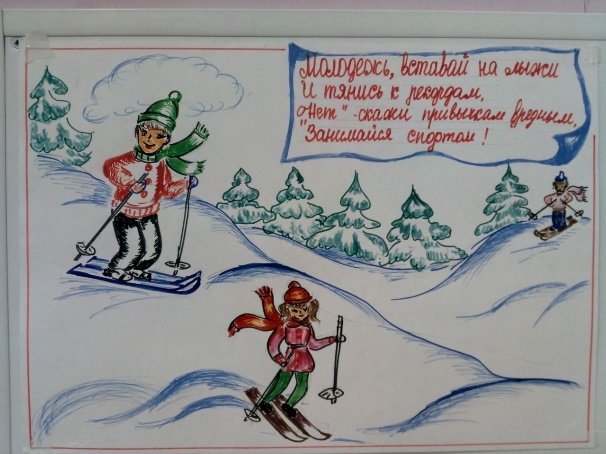 Молодежь, вставай на лыжи
И тянись к рекордам,
"Нет" - скажи привычкам вредным,
"Занимайся спортом!